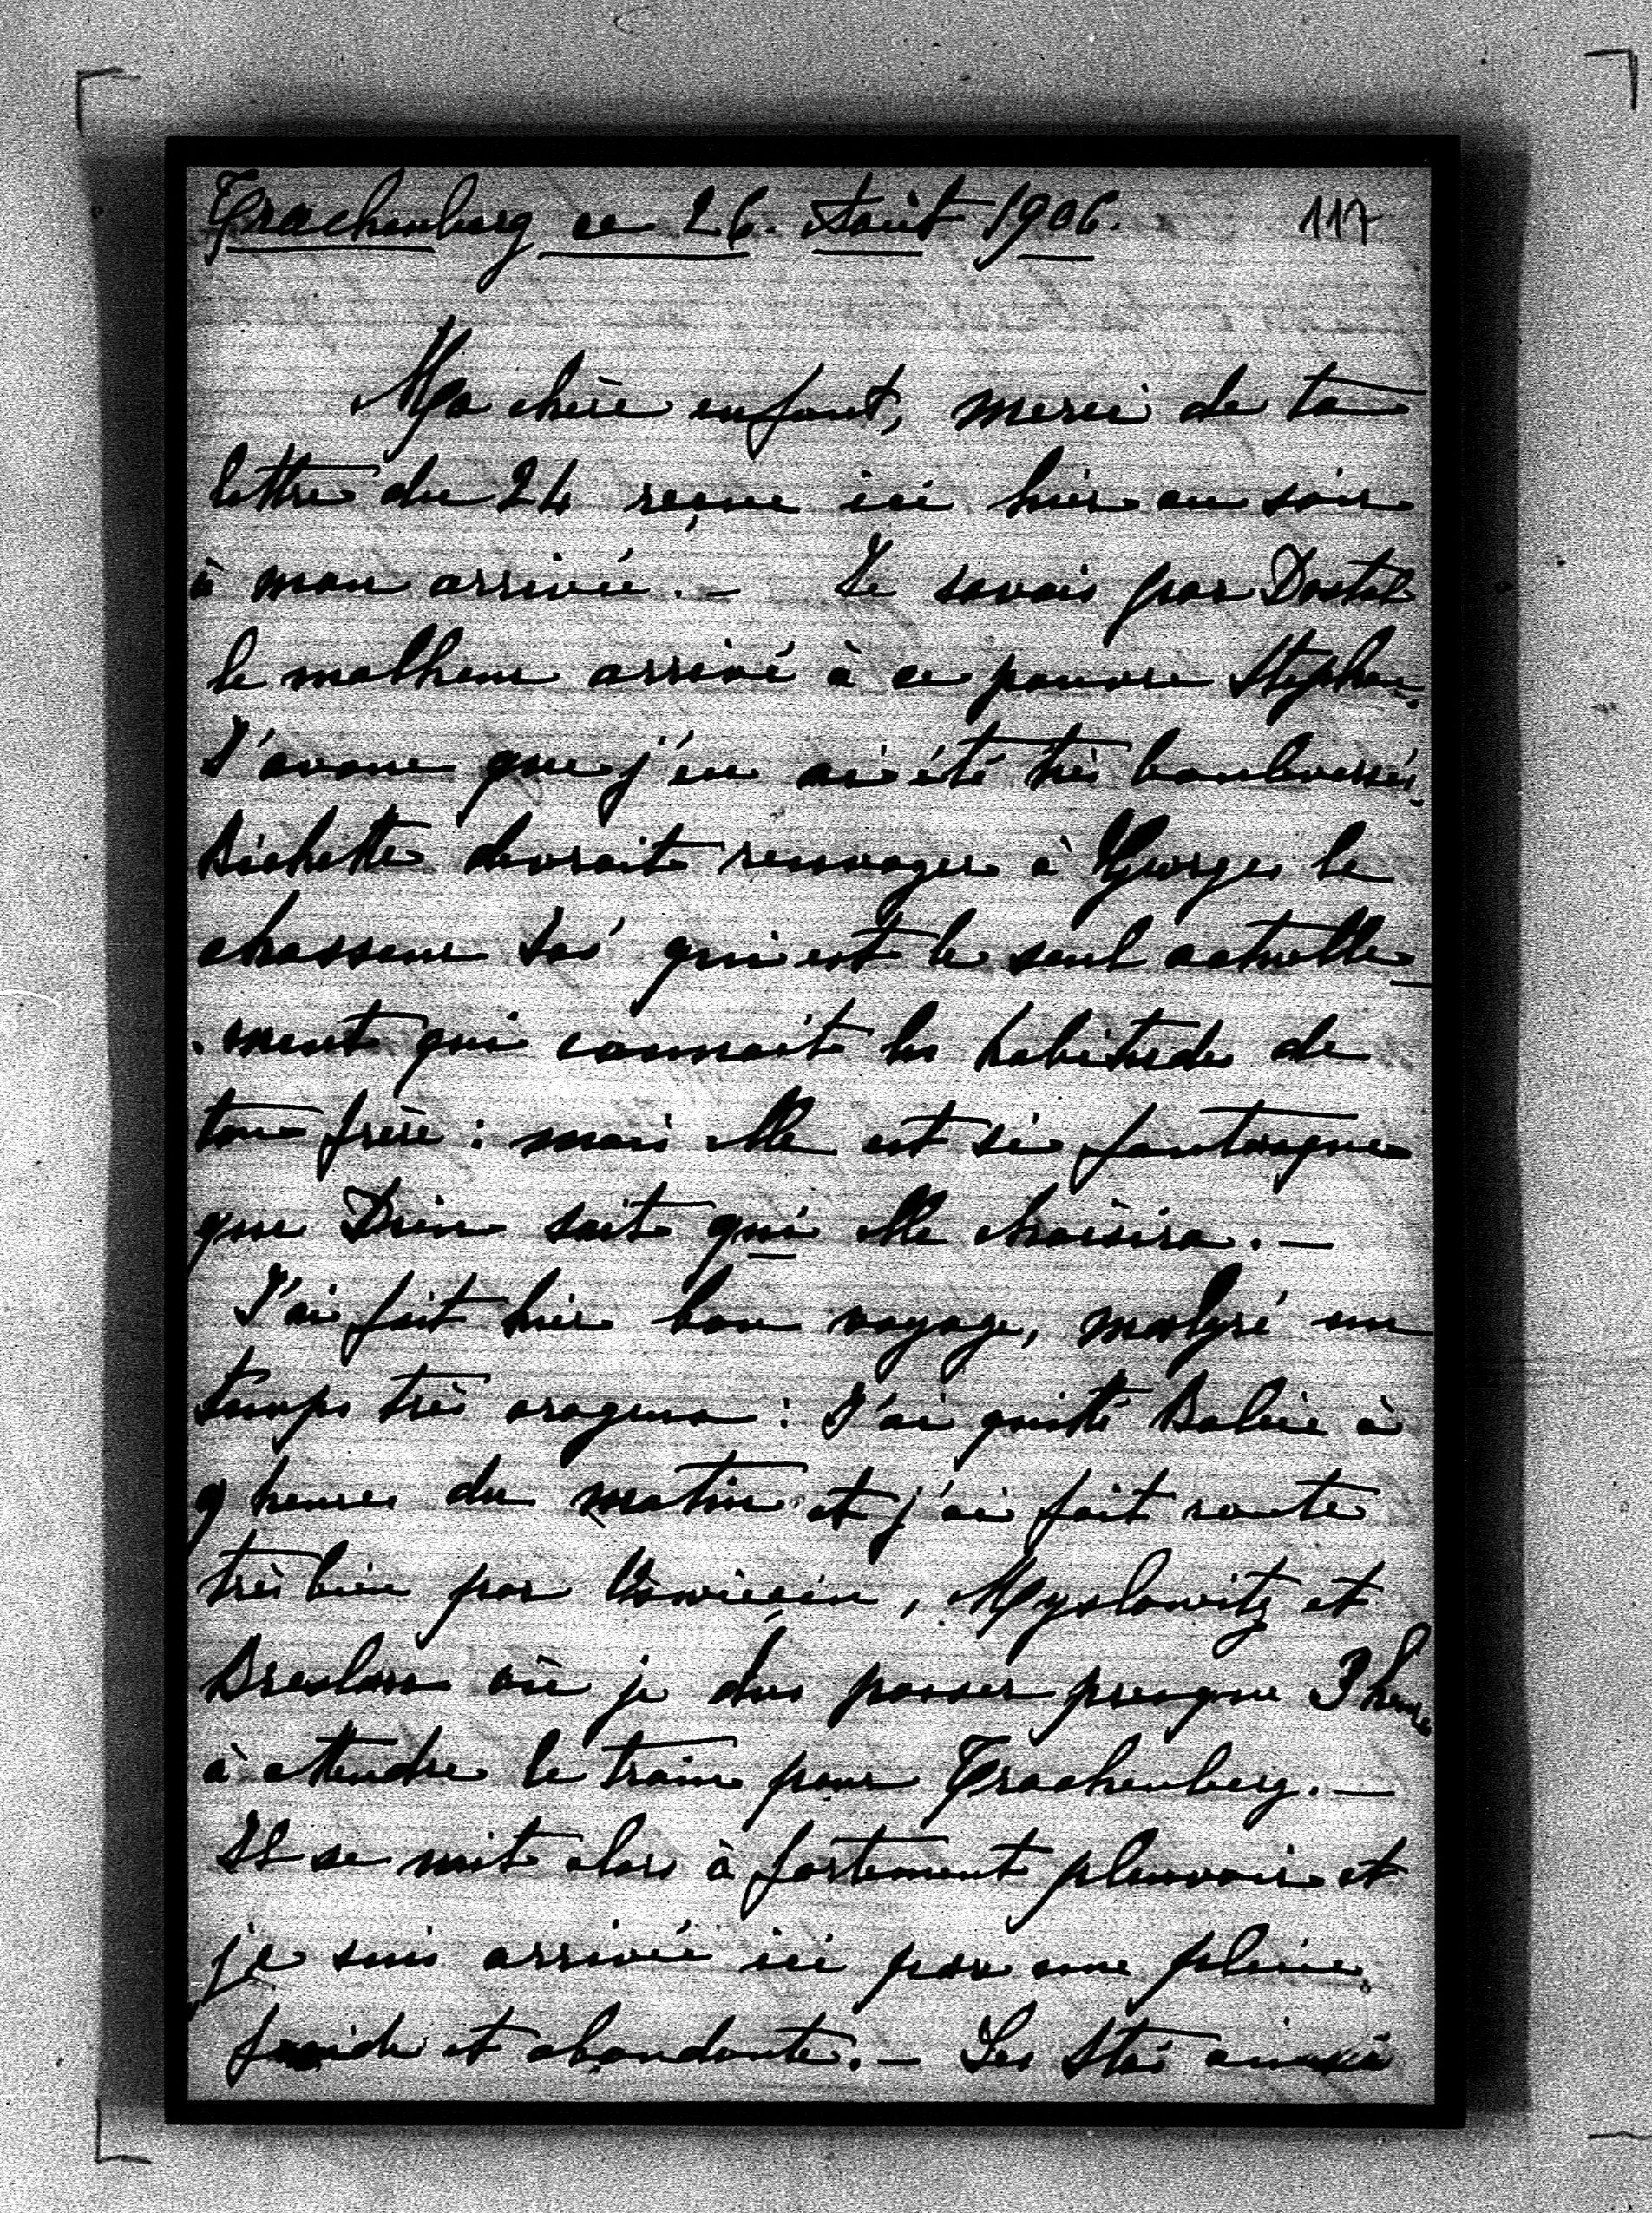 Trachenberg ce 26. Août 1906. 117
Ma chère enfant, merci de ta
lettre du 24 reçue ici hier au soir
à mon arrivée. – Je savais par Dostal
le malheur arrivé à ce pauvre Stephan.
J'avoue que j'en ai été très bouleversée.
Bichette devrait renvoyer à Georges le
chasseur qui est le seul actuelle-
-ment qui connait les habitudes de
ton frère : mais elle est si fantasque
que Dieu sait qui elle choisira. –
J'ai fait hier bon voyage, malgré un
temps très orageux : J'ai quitté Balice à
9 heures du matin et j'ai fait route
très bien par Oswięcin, Myslowitz et
Breslau où je dus passer presque 3 heures
à attendre le train pour Trachenberg. –
Il se mit alors à fortement pleuvoir et
je suis arrivée ici par une pluie
froide et abondante. – Les